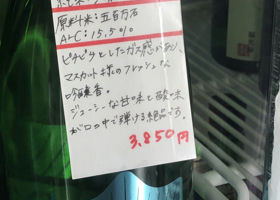 原料米：五百万石
ALC：15.5%
ピチピチとしたガス感があり、
マスカット様のフレッシュな
吟醸香。
ジューシーな甘味と酸味
が口の中で弾ける絶品です。
3,850円